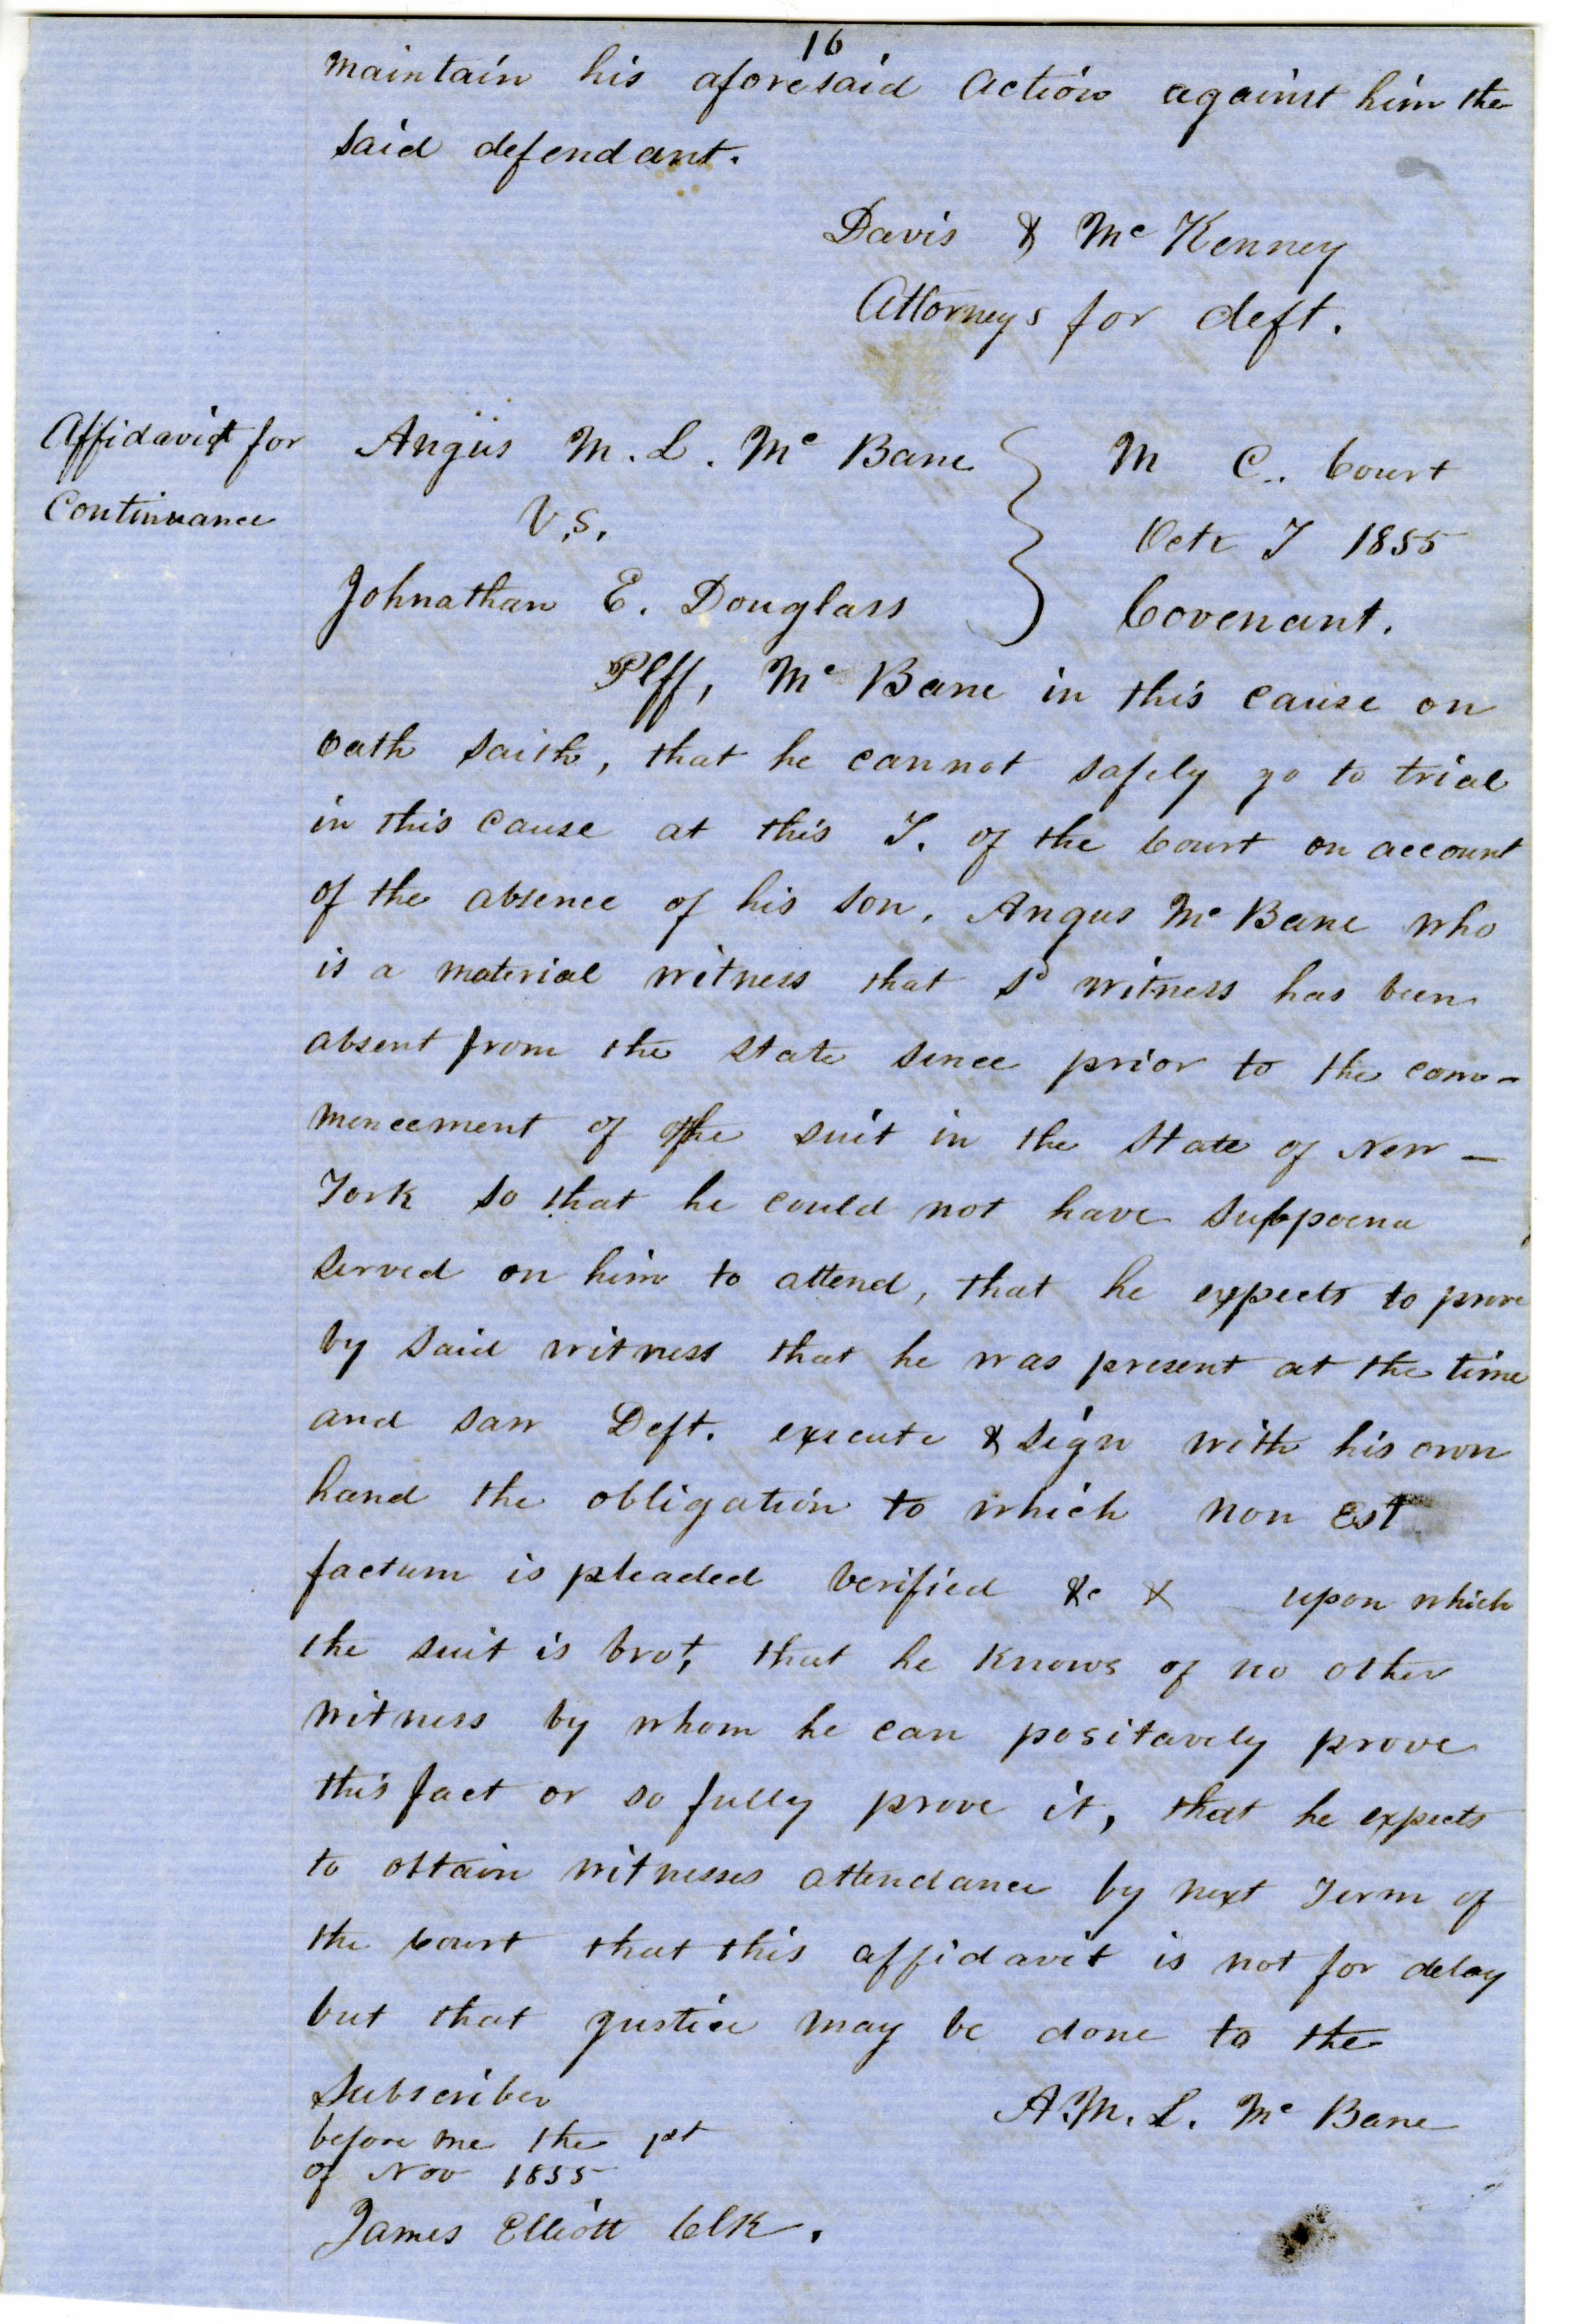 16
maintain his aforesaid action against him the
said defendant.
Davis & Mc Kenney
Attorneys for deft.
Affidavit for
Continuance
Angus M. L. Mc Bane
V.S.
Johnathan E. Douglass
M C. Court
Octr T 1855
Covenant.
Plff, Mc Bane in this cause on
oath saith, that he cannot safely go to trial
in this cause at this T. of the Court on account
of the absence of his son, Angus Mc Bane who
is a material witness that sd witness has been
absent from the state since prior to the com-
mencement of the suit in the State of New-
York so that he could not have subpoena
served on him to attend, that he expects to prove
by said witness that he was present at the time
and saw Deft. execute & sign with his own
hand the obligation to which non est
factum is pleaded verified &c & upon which
the suit is brot, that he knows of no other
witness by whom he can positavely prove
this fact or so fully prove it, that he expects
to obtain witnesses attendance by next Term of
the Court that this affidavit is not for delay
but that justice may be done to the
Subscriber
A. M. L. Mc Bane
before me the 1st
of Nov 1855
James Elliott Clk.